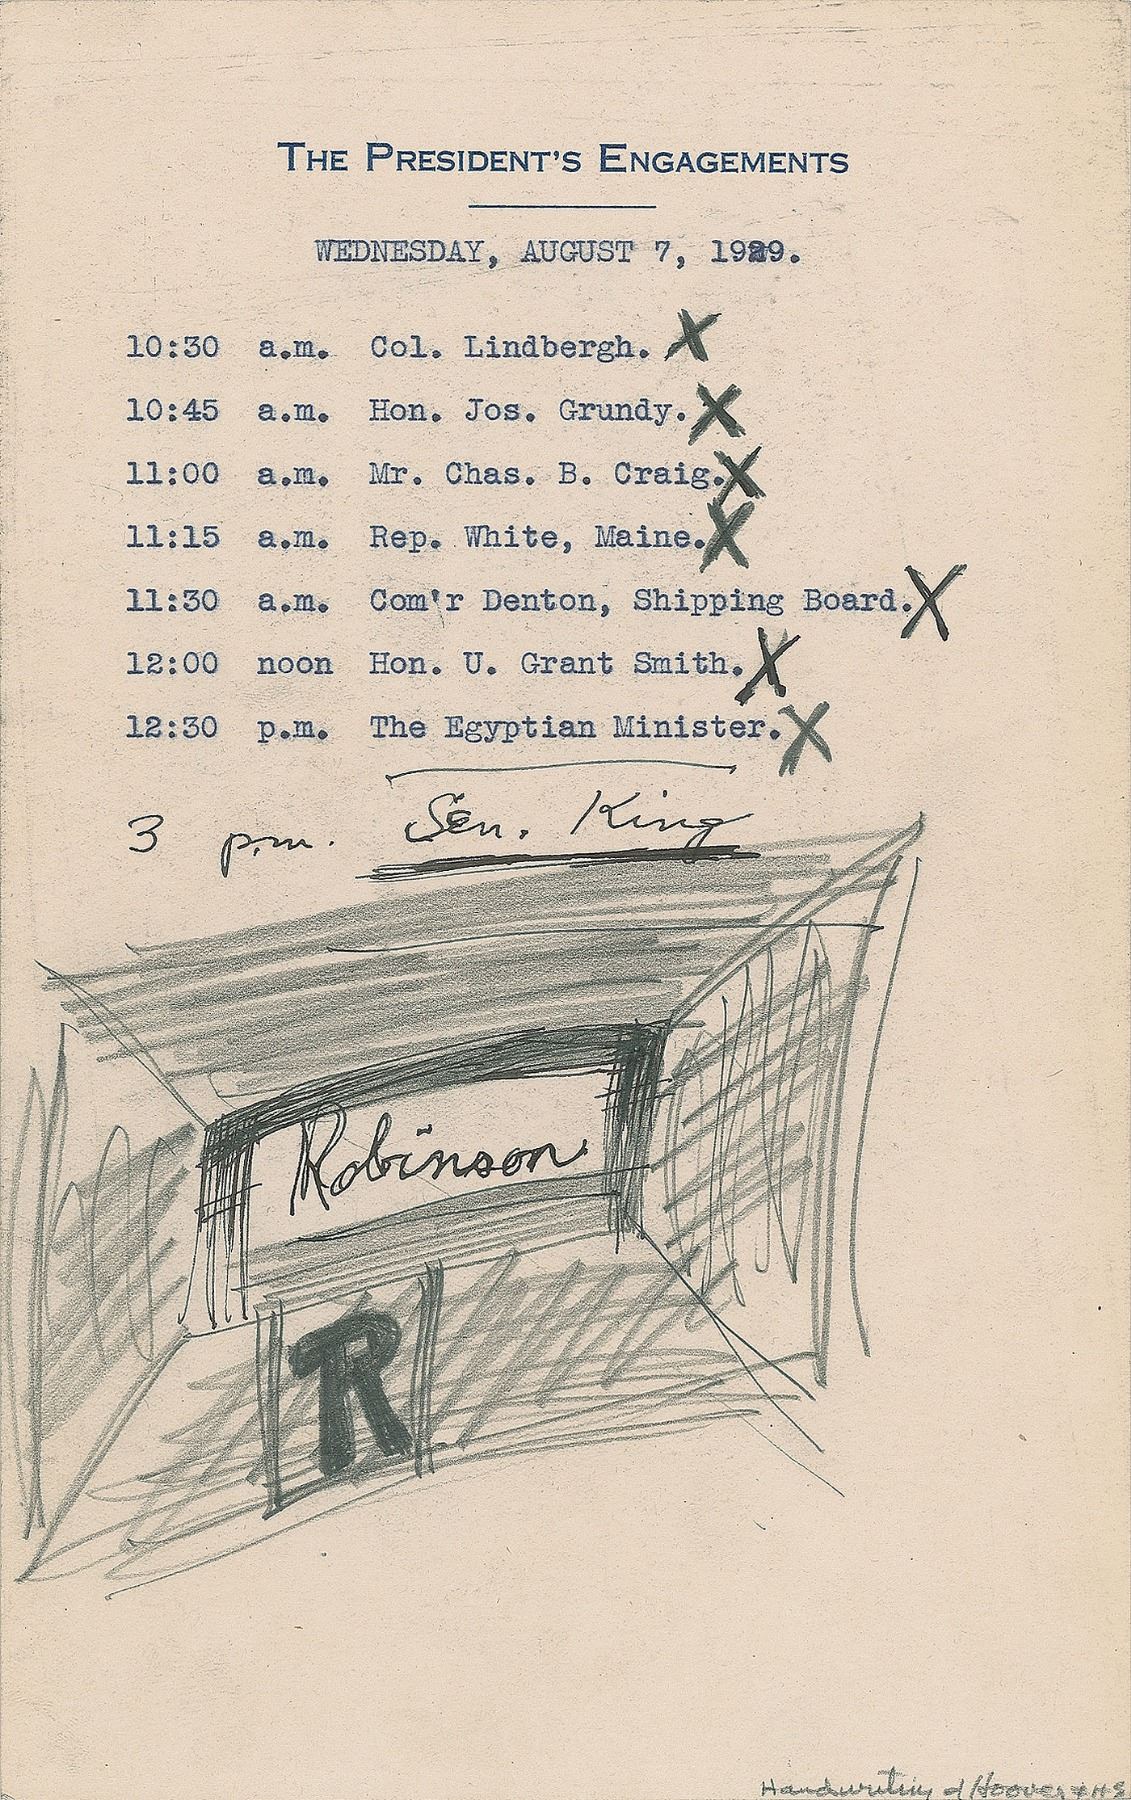 THE PRESIDENT'S ENGAGEMENTS
WEDNESDAY, AUGUST 7, 1929.
10:30 a.m. Col. Lindbergh. X
10:45 a.m. Hon. Jos. Grundy. X
11:00 a.m. Mr. Chas. B. Craig. X
11:15 a.m. Rep. White, Maine. X
11:30 a.m. Com'r Denton, Shipping Board. X
12:00 noon Hon. U. Grant Smith. X
12:30 p.m. The Egyptian Minister. X
3 p.m. Sen. King
Robinson
R
Handwriting of Hoover